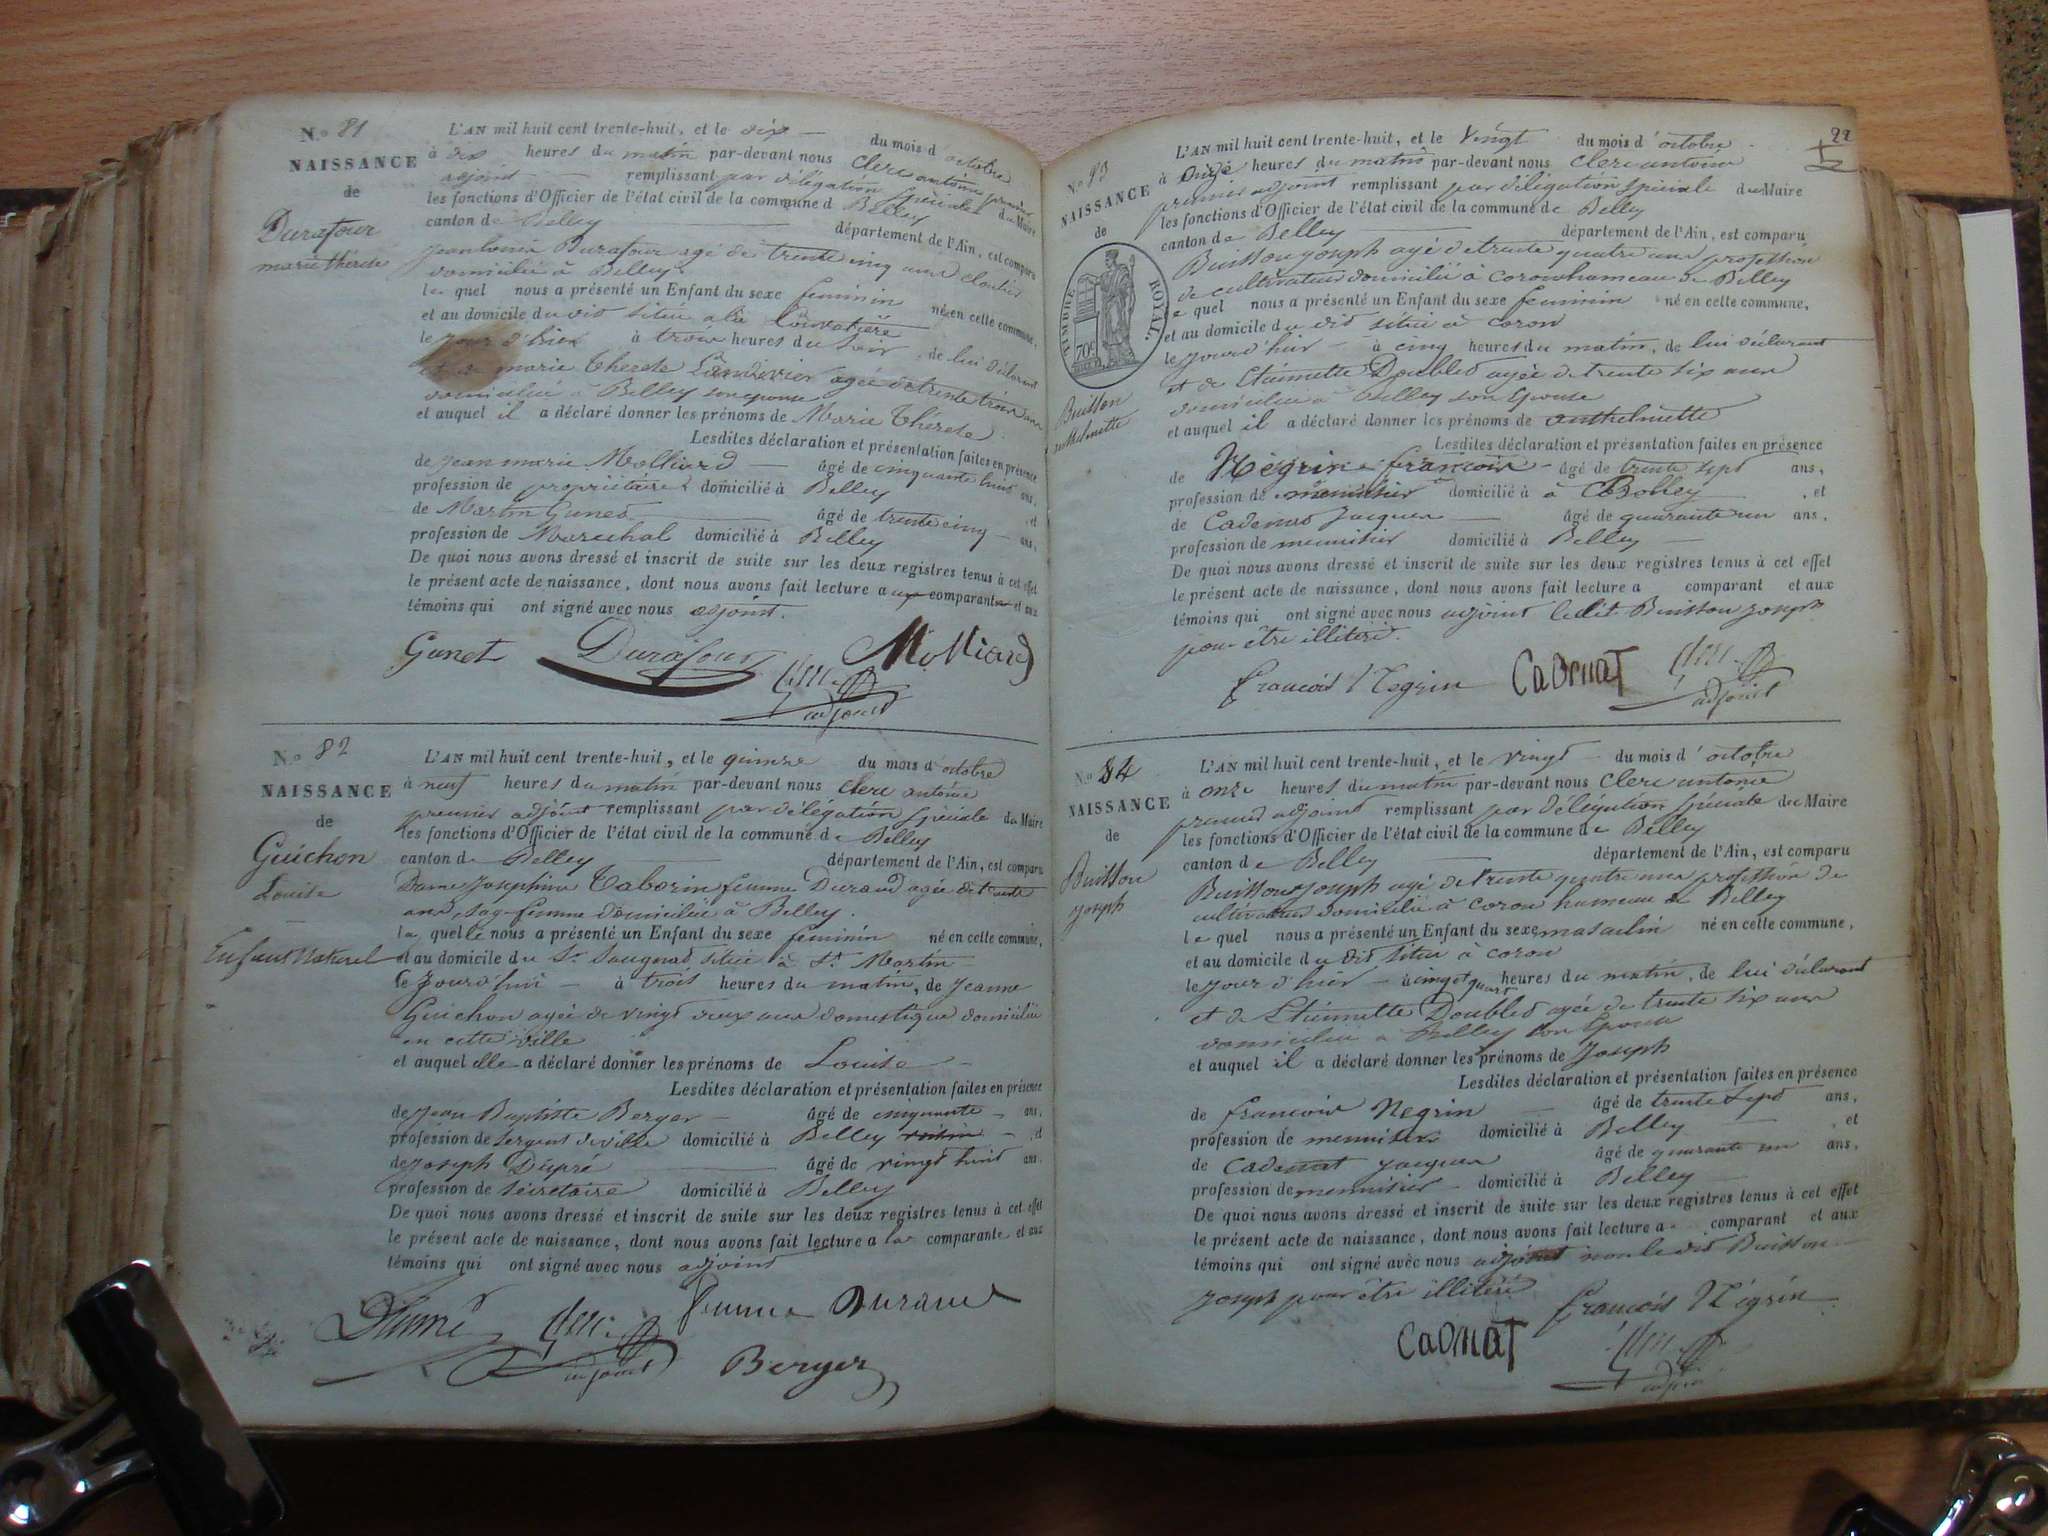 N.o 81
NAISSANCE
de
Durafour
marie thérèse
L'AN mil huit cent trente-huit, et le dix du mois d'octobre
à dix heures du matin par-devant nous Clerc antoine premier
adjoint remplissant par délégation spéciale du Maire
les fonctions d'Officier de l'état civil de la commune d Belley
canton de Belley département de l'Ain, est comparu
Durafour agé de trente cinq ans cloutier
domicilié à Belley
le quel nous a présenté un Enfant du sexe feminin né en cette commune,
et au domicile du dit situé a la
le jour d'hier à trois heures du soir, de lui déclarant
et de marie Therese agée de trente trois ans
domiciliée à Belley son epouse
et auquel il a déclaré donner les prénoms de Marie Thérèse
Lesdites déclaration et présentation faites en présence
de jean marie Molliard âgé de cinquante huit ans,
profession de propriétaire domicilié à Belley , et
de Martin Gunet âgé de trente cinq ans,
profession de Marechal domicilié à Belley
De quoi nous avons dressé et inscrit de suite sur les deux registres tenus à cet effet
le présent acte de naissance, dont nous avons fait lecture aux comparant et aux
témoins qui ont signé avec nous adjoint.
Gunet Durafour Molliard
adjoint
N.o 82
NAISSANCE
de
Guichon
Louise
Enfant Naturel
L'AN mil huit cent trente-huit, et le quinze du mois d'octobre
à neuf heures du matin par-devant nous Clerc antoine
premier adjoint remplissant par délégation spéciale du Maire
les fonctions d'Officier de l'état civil de la commune de Belley
canton de Belley département de l'Ain, est comparu
Dame Josephine Taborin femme Durand agée de trente
ans, sage femme domiciliée à Belley.
la quelle nous a présenté un Enfant du sexe feminin né en cette commune,
et au domicile du Sr situé à St Martin
le jourd'hui à trois heures du matin, de Jeanne
Guichon agée de vingt deux ans domestique domiciliée
en cette ville
et auquel elle a déclaré donner les prénoms de Louise
Lesdites déclaration et présentation faites en présence
de jean Baptiste Berger âgé de cinquante ans,
profession de sergent de ville domicilié à Belley , et
de joseph Dupré âgé de vingt huit ans
profession de Sécrétaire domicilié à Belley
De quoi nous avons dressé et inscrit de suite sur les deux registres tenus à cet effet
le présent acte de naissance, dont nous avons fait lecture a la comparante et aux
témoins qui ont signé avec nous adjoint
femme Durand
adjoint Berger
22
N.o 83
NAISSANCE
de
TIMBRE ROYAL.
70c
Buisson
anthelmette
L'AN mil huit cent trente-huit, et le Vingt du mois d'octobre
à onze heures du matin par-devant nous Clerc antoine
premier adjoint remplissant par délégation spéciale du Maire
les fonctions d'Officier de l'état civil de la commune de Belley
canton de Belley département de l'Ain, est comparu
Buisson joseph agé de trente quatre ans profession
de cultivateur domicilié à coron hameau de Belley
le quel nous a présenté un Enfant du sexe feminin né en cette commune,
et au domicile du dit situé à coron
le jour d'hier à cinq heures du matin, de lui déclarant
et de Etiennette Doublet agée de trente six ans
domiciliée à Belley son épouse
et auquel il a déclaré donner les prénoms de anthelmette
Lesdites déclaration et présentation faites en présence
de Négrin françois âgé de trente sept ans,
profession de menuisier domicilié à à Belley , et
de Cadenat Jacques âgé de quarante un ans,
profession de menuisier domicilié à Belley
De quoi nous avons dressé et inscrit de suite sur les deux registres tenus à cet effet
le présent acte de naissance, dont nous avons fait lecture a comparant et aux
témoins qui ont signé avec nous adjoint ledit Buisson joseph
pour être illitéré.
francois Negrin
adjoint
N.o 84
NAISSANCE
de
Buisson
joseph
L'AN mil huit cent trente-huit, et le vingt du mois d'octobre
à onze heures du matin par-devant nous Clerc antoine
premier adjoint remplissant par délégation spéciale du Maire
les fonctions d'Officier de l'état civil de la commune de Belley
canton de Belley département de l'Ain, est comparu
Buisson joseph agé de trente quatre ans profession de
cultivateur domicilié à coron hameau de Belley
le quel nous a présenté un Enfant du sexe masculin né en cette commune,
et au domicile du dit situé à coron
le jour d'hier à cinq et quart heures du matin, de lui déclarant
et de Etiennette Doublet agée de trente six ans
domiciliée à Belley son épouse
et auquel il a déclaré donner les prénoms de Joseph
Lesdites déclaration et présentation faites en présence
de françois Negrin âgé de trente sept ans,
profession de menuisier domicilié à Belley , et
de Cadenat jacques âgé de quarante un ans,
profession de menuisier domicilié à Belley
De quoi nous avons dressé et inscrit de suite sur les deux registres tenus à cet effet
le présent acte de naissance, dont nous avons fait lecture a comparant et aux
témoins qui ont signé avec nous adjoint non le dit Buisson
joseph pour être illitéré
francois Négrin